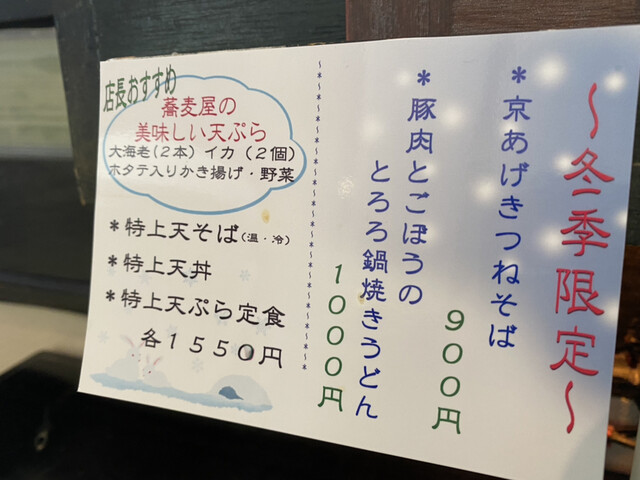 〜冬季限定〜
＊京あげきつねそば
９００円
＊豚肉とごぼうの
とろろ鍋焼きうどん
１０００円
店長おすすめ
蕎麦屋の
美味しい天ぷら
大海老（２本）イカ（２個）
ホタテ入りかき揚げ・野菜
＊特上天そば（温・冷）
＊特上天丼
＊特上天ぷら定食
各１５５０円